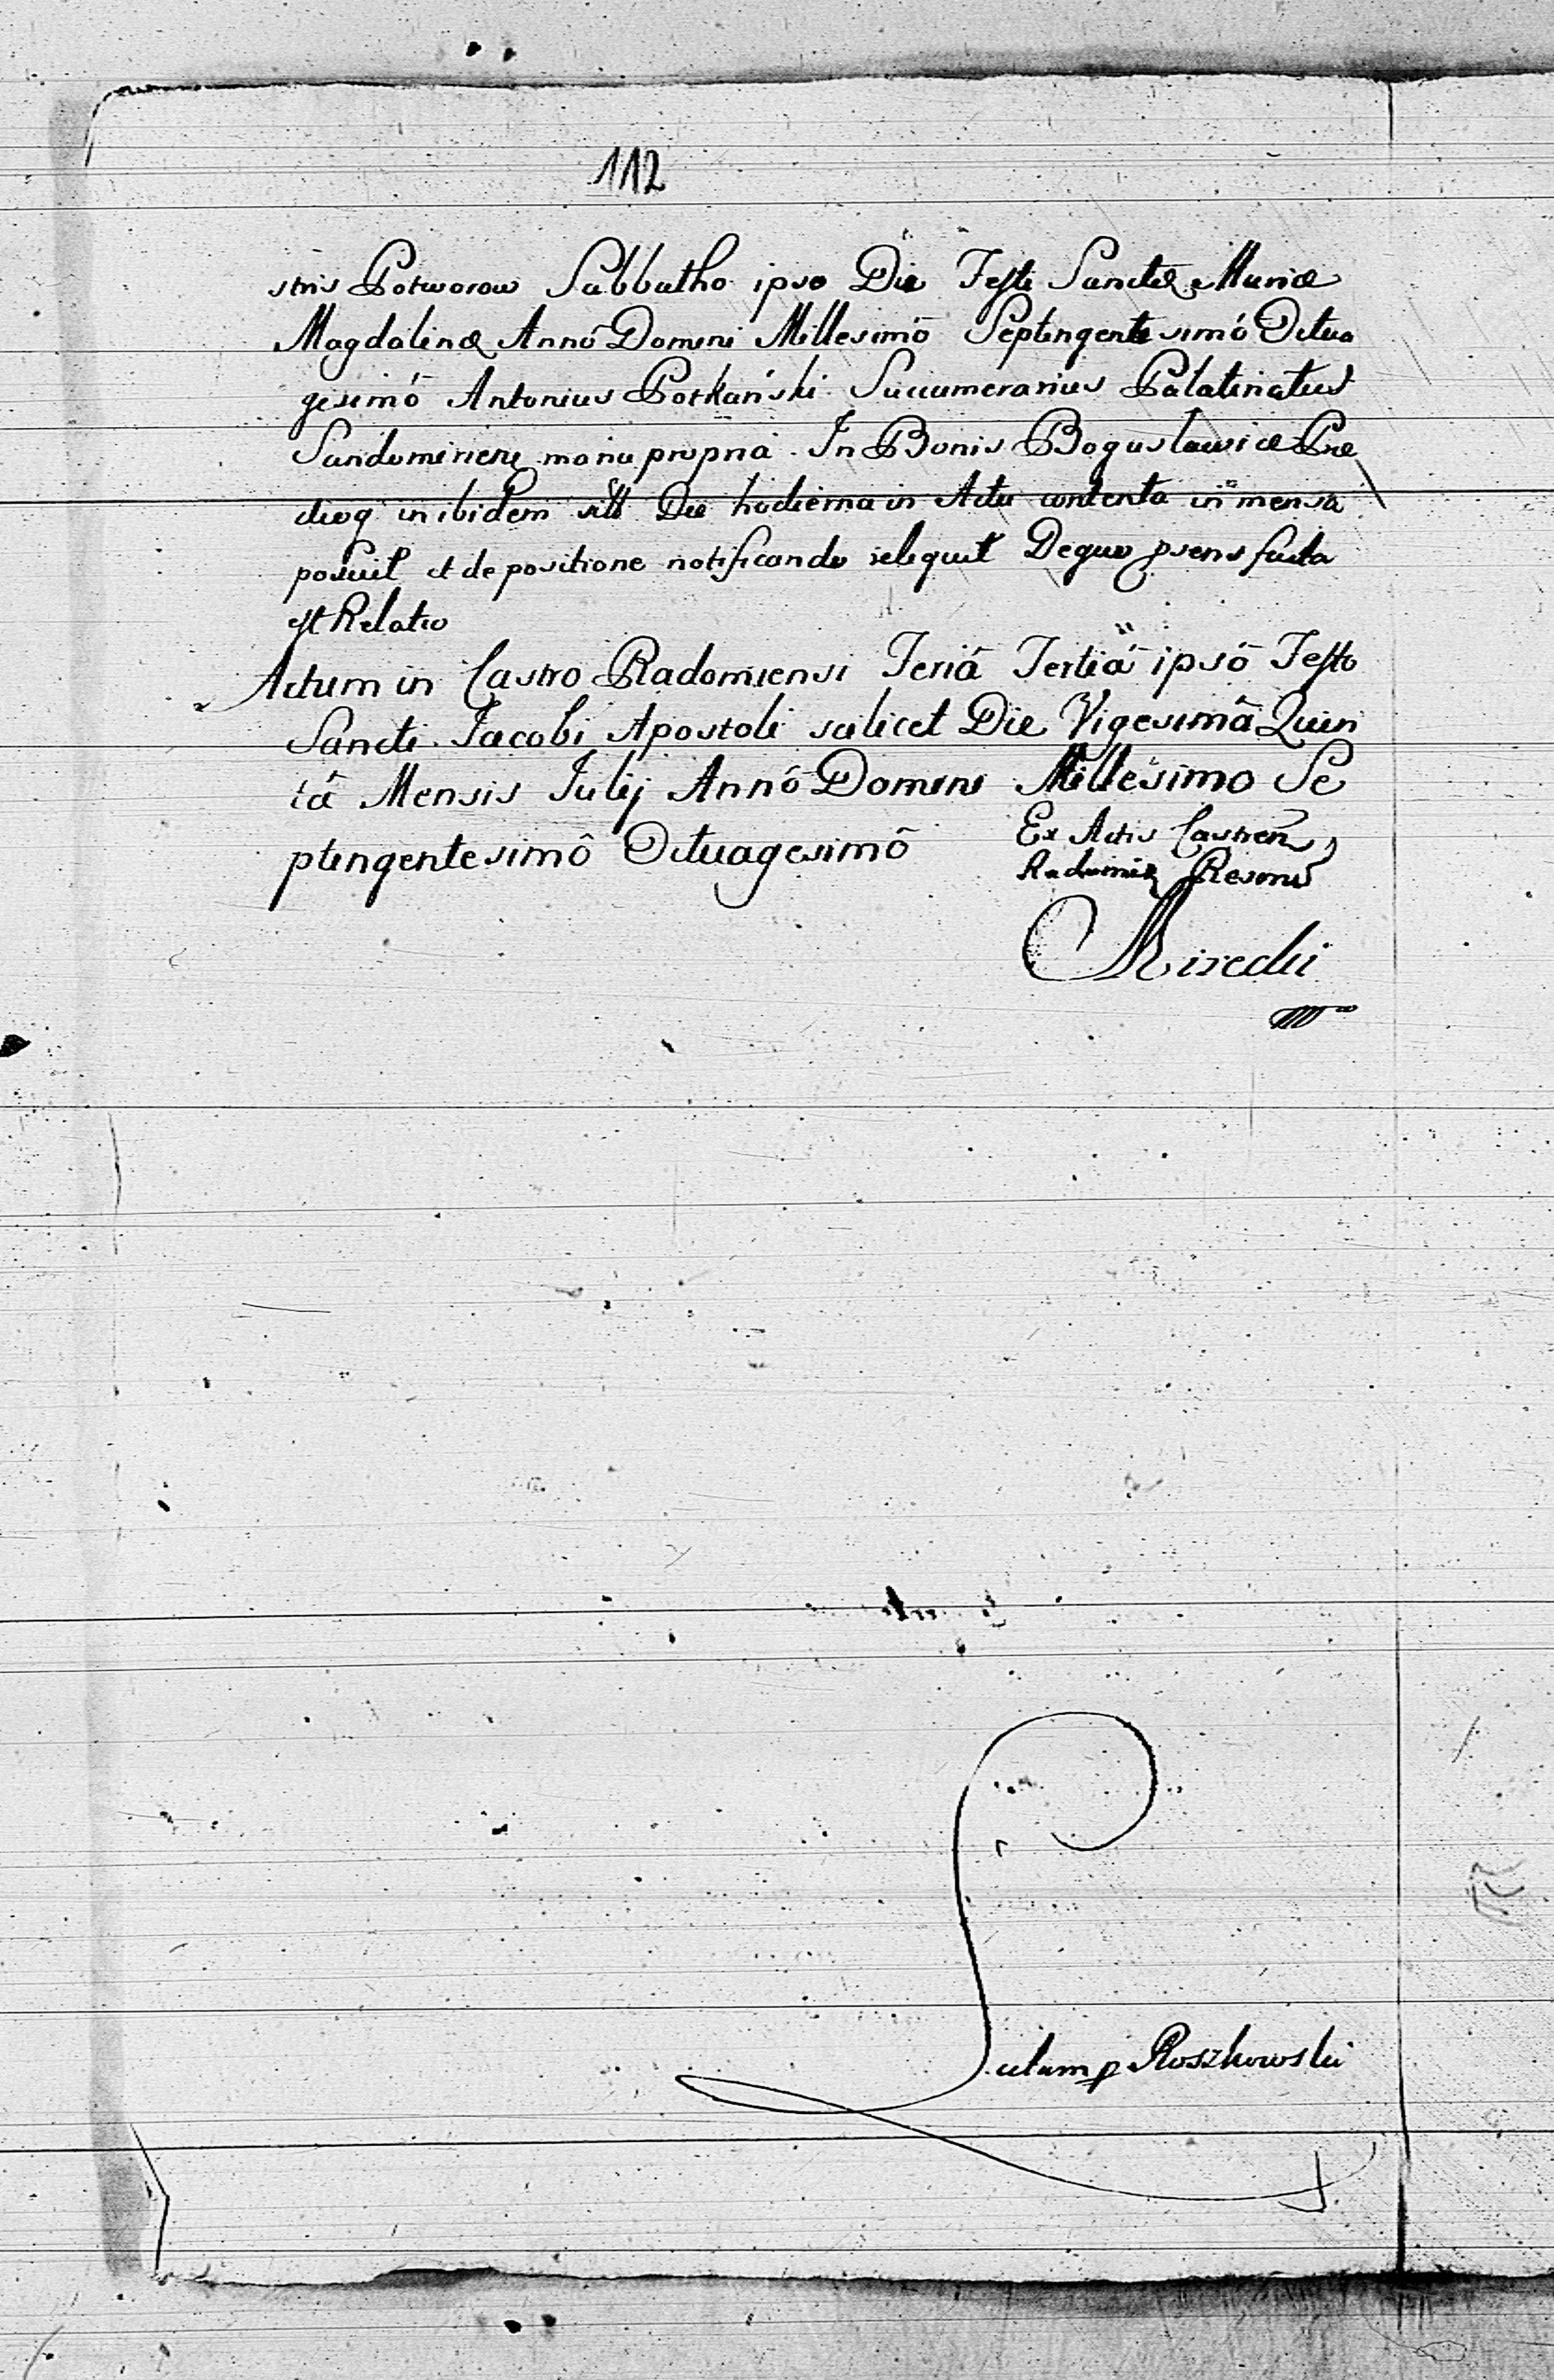 112
stris Potworow Sabbatho ipso Die Festi Sanctæ Mariæ
Magdalenæ Annô Domini Millesimô Septingentesimô Octua
gesimô Antonius Potkański Succamerarius Palatinatus
Sandomirien manu propria. In Bonis Boguslawice Præ
dioq inibidem Die hodierna in Actu contenta in mensa
posuit et de positione notificando reliquit Dequo psens facta
est Relatio
Actum in Castro Radomiensi Feriâ Tertiâ ipsô Festo
Sancti Jacobi Apostoli scilicet Die Vigesimâ Quin
tâ Mensis Julij Annô Domini Millesimo Se
ptingentesimô Octuagesimô
Ex Actis Castren
Radomien
lectum p Roszkowski